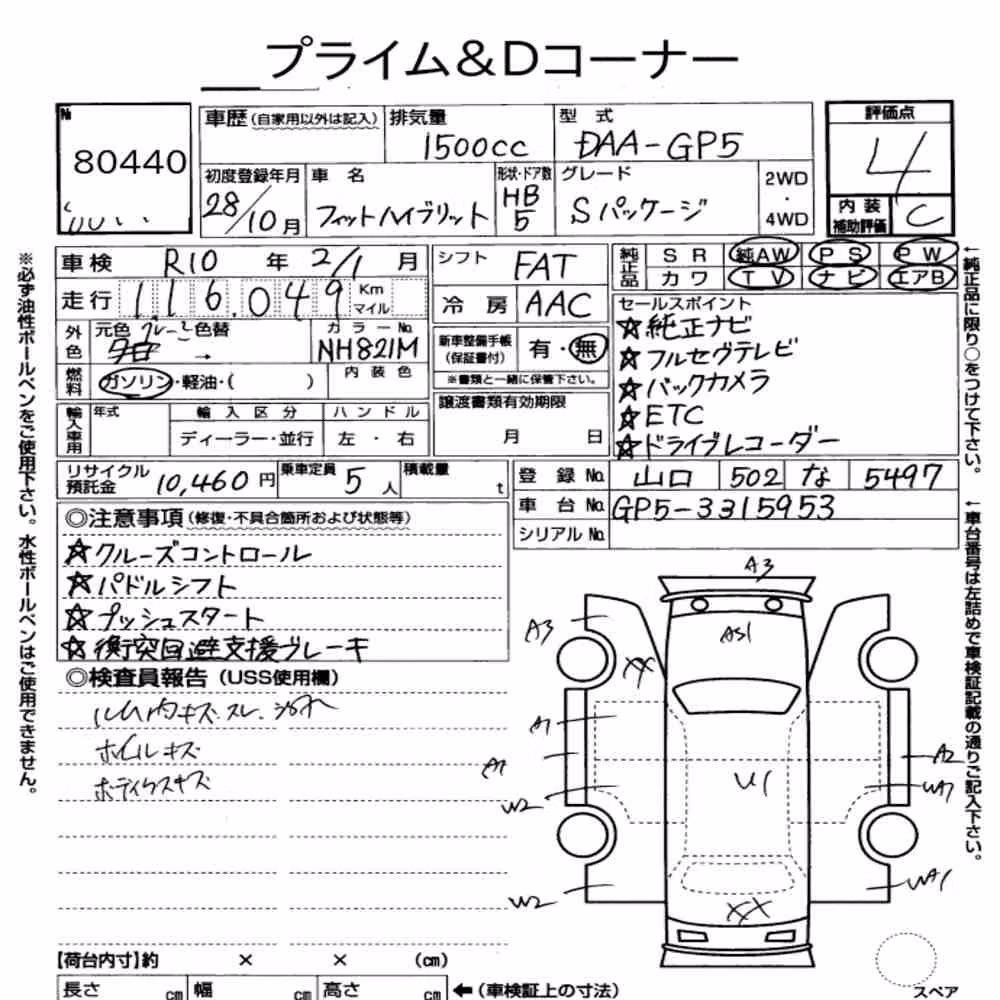 プライム&Dコーナー
№ 80440
車歴 (自家用以外は記入)
排気量 1500cc
型式 DAA-GP5
評価点 4
内装補助評価 C
初度登録年月 28/10月
車名 フィットハイブリット
形状・ドア数 HB 5
グレード Sパッケージ
2WD ・ 4WD
車検 R10年 2/1月
走行 116,049 Km マイル
外色 元色 グレー 色替 →
カラーNo. NH821M
燃料 ガソリン・軽油・( )
内装色
輸入車用 年式 輸入区分 ディーラー・並行 ハンドル 左・右
シフト FAT
冷房 AAC
新車整備手帳 (保証書付) 有・無
※書類と一緒に保管下さい。
譲渡書類有効期限 月 日
純正品 SR 純AW PS PW
カワ TV ナビ エアB
セールスポイント
☆純正ナビ
☆フルセグテレビ
☆バックカメラ
☆ETC
☆ドライブレコーダー
リサイクル預託金 10,460円
乗車定員 5人
積載量 t
登録No. 山口 502 な 5497
車台No. GP5-3315953
シリアルNo.
◎注意事項(修復・不具合箇所および状態等)
☆クルーズコントロール
☆パドルシフト
☆プッシュスタート
☆衝突回避支援ブレーキ
◎検査員報告(USS使用欄)
ルーム内キズ.スレ.汚れ
ホイルキズ
ボディクスキズ
A3
A3
AS1
XX
A1
A1
U1
A2
WA7
W2
WA1
W2
XX
スペア
【荷台内寸】約 × × (cm)
長さ cm 幅 cm 高さ cm ←(車検証上の寸法)
※必ず油性ボールペンをご使用下さい。水性ボールペンはご使用できません。
←純正品に限り○をつけて下さい。
←車台番号は左詰めで車検証記載の通りご記入下さい。